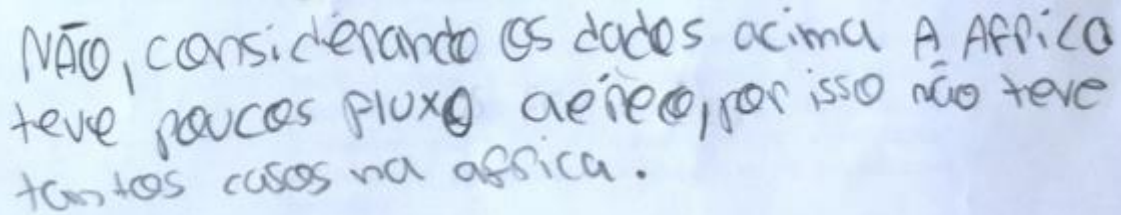 NÃO, considerando os dados acima A AFRICA
teve poucos fluxo aéreo, por isso não teve
tantos casos na affrica.